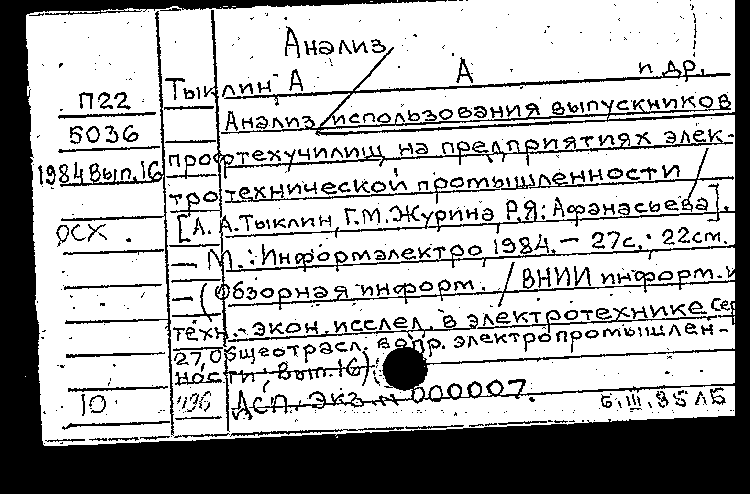 Анализ
Тыклин, А А и др.
П22
Анализ использования выпускников
5036
профтехучилищ на предприятиях элек-
1984 Вып. 16
тротехнической промышленности
[А. А. Тыклин, Г. М. Журина, Р. Я. Афанасьева].
ОСХ.
— М.: Информэлектро, 1984. — 27 с.; 22 см.
— (Обзорная информ. / ВНИИ информ. и
техн.-экон. исслед. в электротехнике. Сер
27, Общеотрасл. вопр. электропромышлен-
ности; Вып. 16) (
10
ДСП. Экз. N 000007.
5.III.85 ЛБ